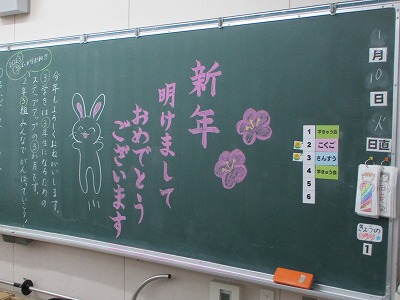 1
月
10
日
火
日直
新年
明けまして
おめでとう
ございます
今年もよろしくおねがいします。
③学きは③年生になるための
ステップアップの③か月です。
2年③組みんなでがんばっていこう!
1 学きゅう会
2 こくご
3 さんすう
4 学きゅう会
5
6
きょうの
1